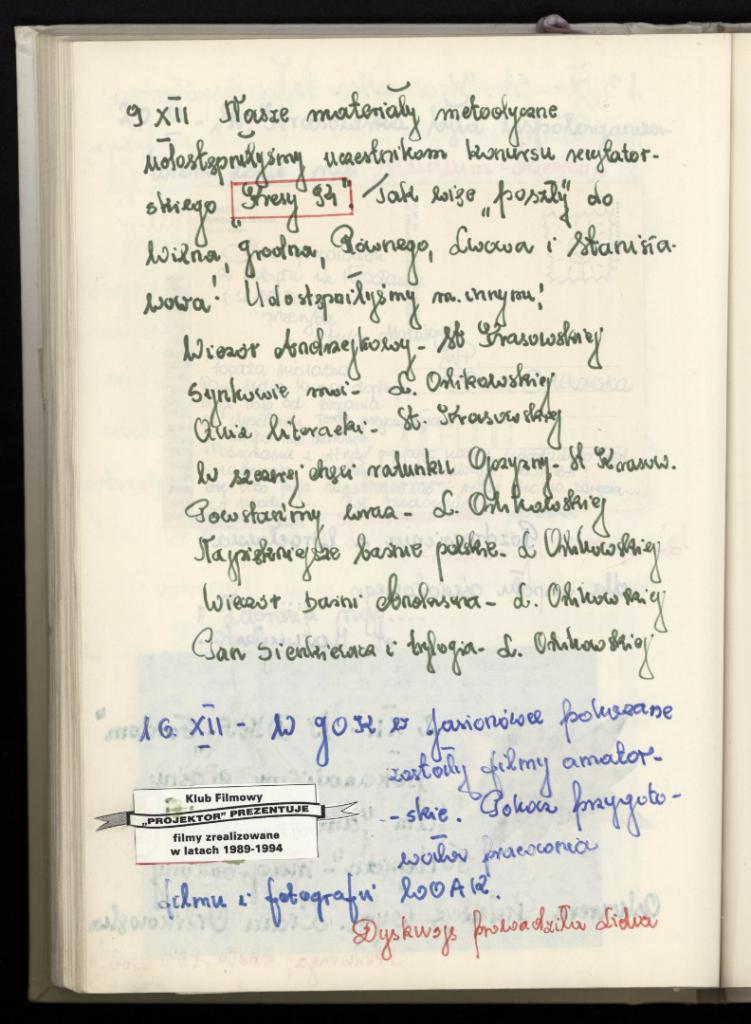 9 XII Nasze materiały metodyczne
udostępniłyśmy uczestnikom konkursu recytator-
skiego „Kresy 94”. Tak więc „poszły” do
Wilna, Grodna, Równego, Lwowa i Stanisła-
wowa! Udostępniłyśmy m.innymi!
Wieczór Andrzejkowy - St Krasowskiej
Synkowie moi - L. Orlikowskiej
Quiz literacki - St. Krasowskiej
W szczerej chęci ratunku Ojczyzny - St Krasow.
Powstańmy wraz - L. Orlikowskiej
Najpiękniejsze baśnie polskie - L Orlikowskiej
Wieczór baśni Andersena - L. Orlikowskiej
Pan Sienkiewicz i trylogia - L. Orlikowskiej
16. XII - W GOK w Jasionówce pokazane
zostały filmy amator-
- skie. Pokaz przygoto-
wała pracownia
filmu i fotografii WOAK.
Klub Filmowy
„PROJEKTOR” PREZENTUJE
filmy zrealizowane
w latach 1989-1994
Dyskusję prowadziła Lidka